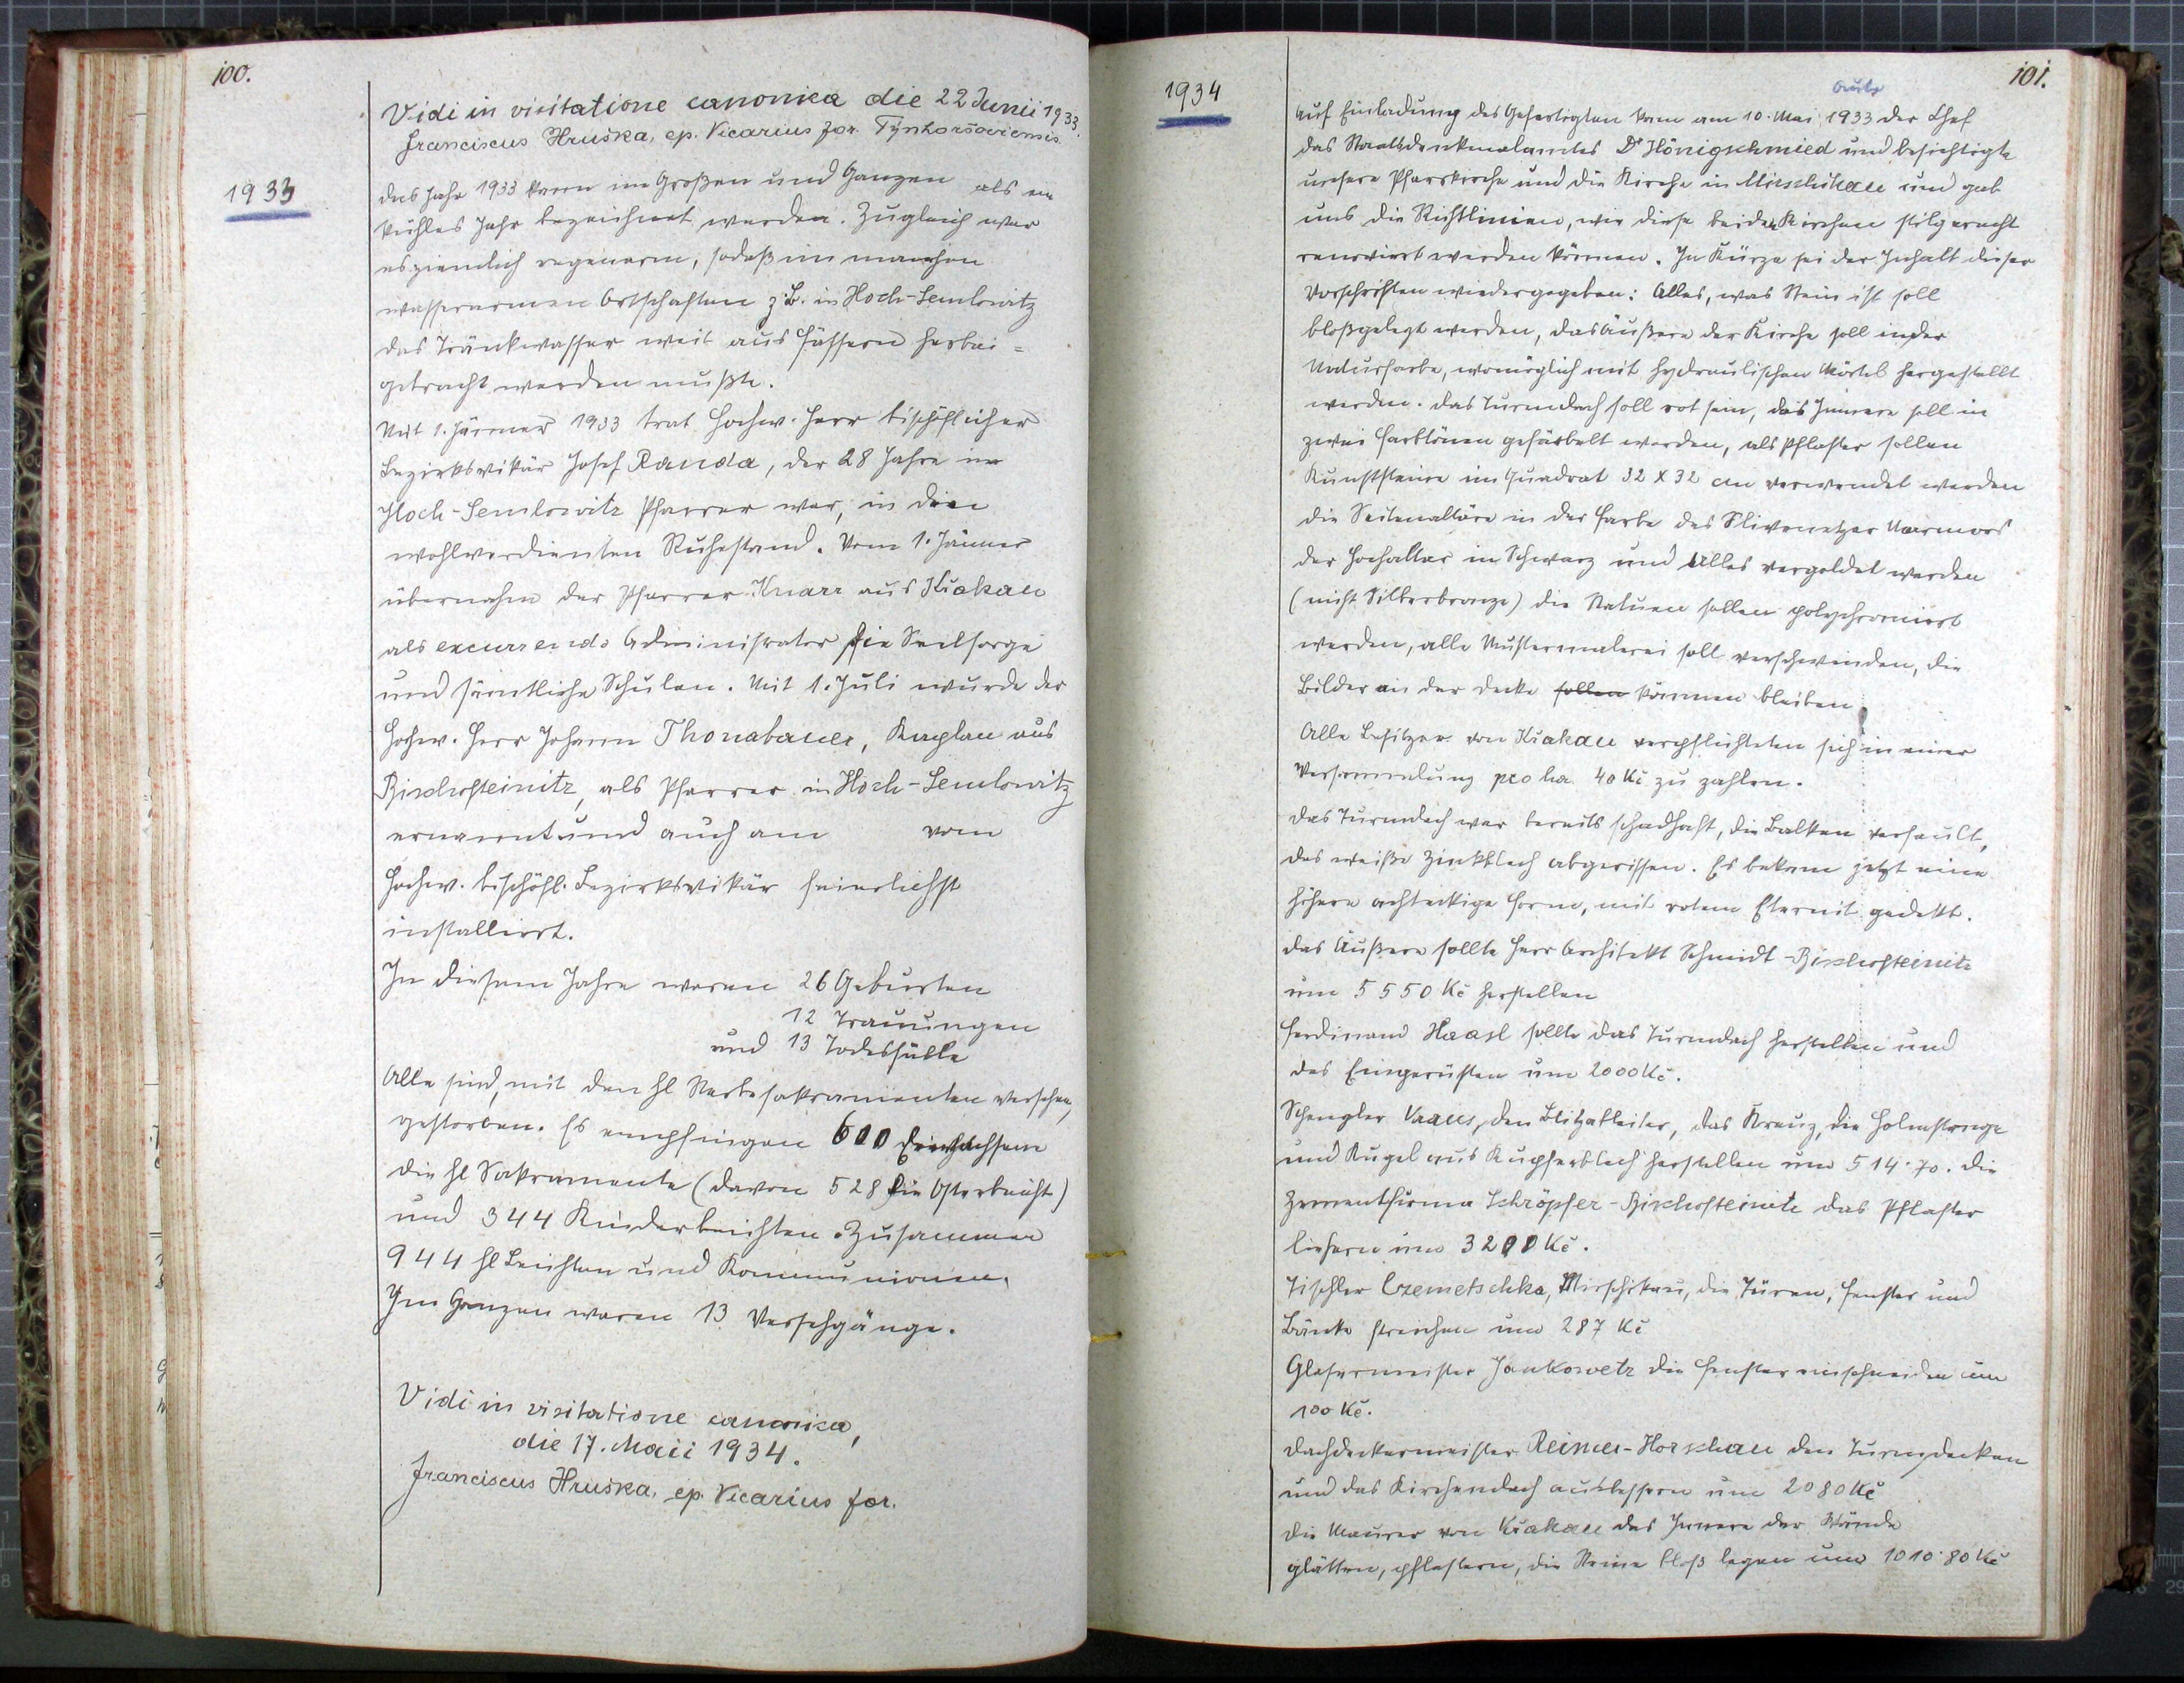 100.
Vidi in visitatione canonica die 22 Junii 1933.
Franciscus Hruška, ep. Vicarius for. Týnhoršoviensis.
1933
Das Jahr 1933 kann im Großen und Ganzen als ein
kühles Jahr bezeichnet werden. Zugleich war
es ziemlich regenarm, sodaß in manchen
wasserarmen Ortschaften z.B. in Hoch-Semlowitz
das Tränkwasser weit aus Fässern herbei=
gebracht werden mußte.
Mit 1. Jänner 1933 trat Hochw. Herr bischöflicher
Bezirksvikär Josef Randa, der 28 Jahre in
Hoch-Semlowitz Pfarrer war, in den
wohlverdienten Ruhestand. Vom 1. Jänner
übernahm der Pfarrer Knarr aus Křakau
als excurrendo Administrator die Seelsorge
und sämtliche Schulen. Mit 1. Juli wurde der
Hochw. Herr Johann Thonabauer, Kaplan aus
Bischofteinitz, als Pfarrer in Hoch-Semlowitz
ernannt und auch am vom
Hochw. bischöfl. Bezirksvikär feierlichst
installiert.
In diesem Jahre waren 26 Geburten
12 Trauungen
und 13 Todesfälle
Alle sind, mit den hl Sterbesakramenten versehen,
gestorben. Es empfingen 600 Erwachsene
die hl Sakramente (davon 528 die Osterbeicht)
und 344 Kinderbeichten. Zusammen
944 hl Beichten und Kommunionen.
Im Ganzen waren 13 Versehgänge.
Vidi in visitatione canonica,
die 17. Maii 1934.
Franciscus Hruška, ep. Vicarius for.
101.
1934
Auf Einladung des Gefertigten kam am 10. Mai 1933 der Chef
das Staatsdenkmalamtes Dr Hönigschmied und besichtigte
unsere Pfarrkirche und die Kirche in Mirschikau und gab
uns die Richtlinien, wie diese beiden Kirchen stilgerecht
renoviert werden können. In Kürze sei der Inhalt dieser
Vorschriften wiedergegeben: Alles, was Stein ist soll
bloßgelegt werden, das Äußere der Kirche soll in der
Naturfarbe, womöglich mit hydraulischen Mörtel hergestellt
werden. Das Turmdach soll rot sein, das Innere soll in
zwei Farbtönen gefärbelt werden, als Pflaster sollen
Kunststeine im Quadrat 32 X 32 cm verwendet werden
die Seitenaltäre in der Farbe des Slivenetzer Marmors
der Hochaltar in Schwarz und Alles vergoldet werden
(nicht Silberbronze) die Statuen sollen polychromiert
werden, alle Mustermalerei soll verschwinden, die
Bilder an der Decke sollen können bleiben.
Alle Besitzer von Křakau verpflichteten sich in einer
Versammlung pro ha 40 Kč zu zahlen.
Das Turmdach war bereits schadhaft, die Balken verfault,
das weiße Zinkblech abgerissen. Es bekam jetzt eine
höhere achteckige Form, mit rotem Eternit gedekt.
Das Äußere sollte Herr Architekt Schmidt-Bischofteinitz
um 5550 Kč herstellen
Ferdinand Haasl sollte das Turmdach herstellen und
das Eingerüsten um 2000 Kč.
Spengler Kraus, den Blitzableiter, das Kreuz, die Helmstange
und Kugel aus Kupferblech herstellen um 514.70. Die
Zementfirma Schröpfer-Bischofteinitz das Pflaster
liefern um 3200 Kč.
Tischler Czemetschka, Mirschikau, die Türen, Fenster und
Bänke streichen um 287 Kč
Glasermeister Jankowetz die Fenster einschneiden um
100 Kč.
Dachdeckermeister Reimer-Horschau den Turm decken
und das Kirchendach ausbessern um 2080 Kč
Die Maurer von Křakau das Innere der Wände
glätten, pflastern, die Steine bloß legen um 1010.80 Kč